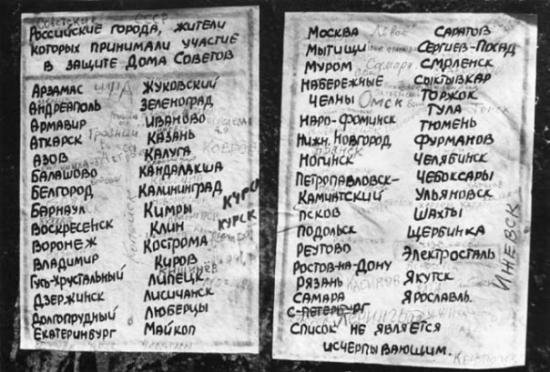 Российские города, жители
которых принимали участие
в защите Дома Советов
Арзамас
Андреаполь
Армавир
Аткарск
Азов
Балашово
Белгород
Барнаул
Воскресенск
Воронеж
Владимир
Гусь-Хрустальный
Дзержинск
Долгопрудный
Екатеринбург
Жуковский
Зеленоград
Иваново
Казань
Калуга
Кандалакша
Калининград
Кимры
Клин
Кострома
Киров
Липецк
Лисичанск
Люберцы
Майкоп
Курск
Курск
Москва
Мытищи
Муром
Набережные
Челны
Омск
Наро-Фоминск
Нижн. Новгород
Ногинск
Петропавловск-
Камчатский
Псков
Подольск
Реутово
Ростов-на-Дону
Рязань
Самара
С-Петербург
Ленинград
Саратов
Сергиев-Посад
Смоленск
Сыктывкар
Торжок
Тула
Тюмень
Фурманов
Челябинск
Чебоксары
Ульяновск
Шахты
Щербинка
Электросталь
Якутск
Ярославль.
Список не является
исчерпывающим.